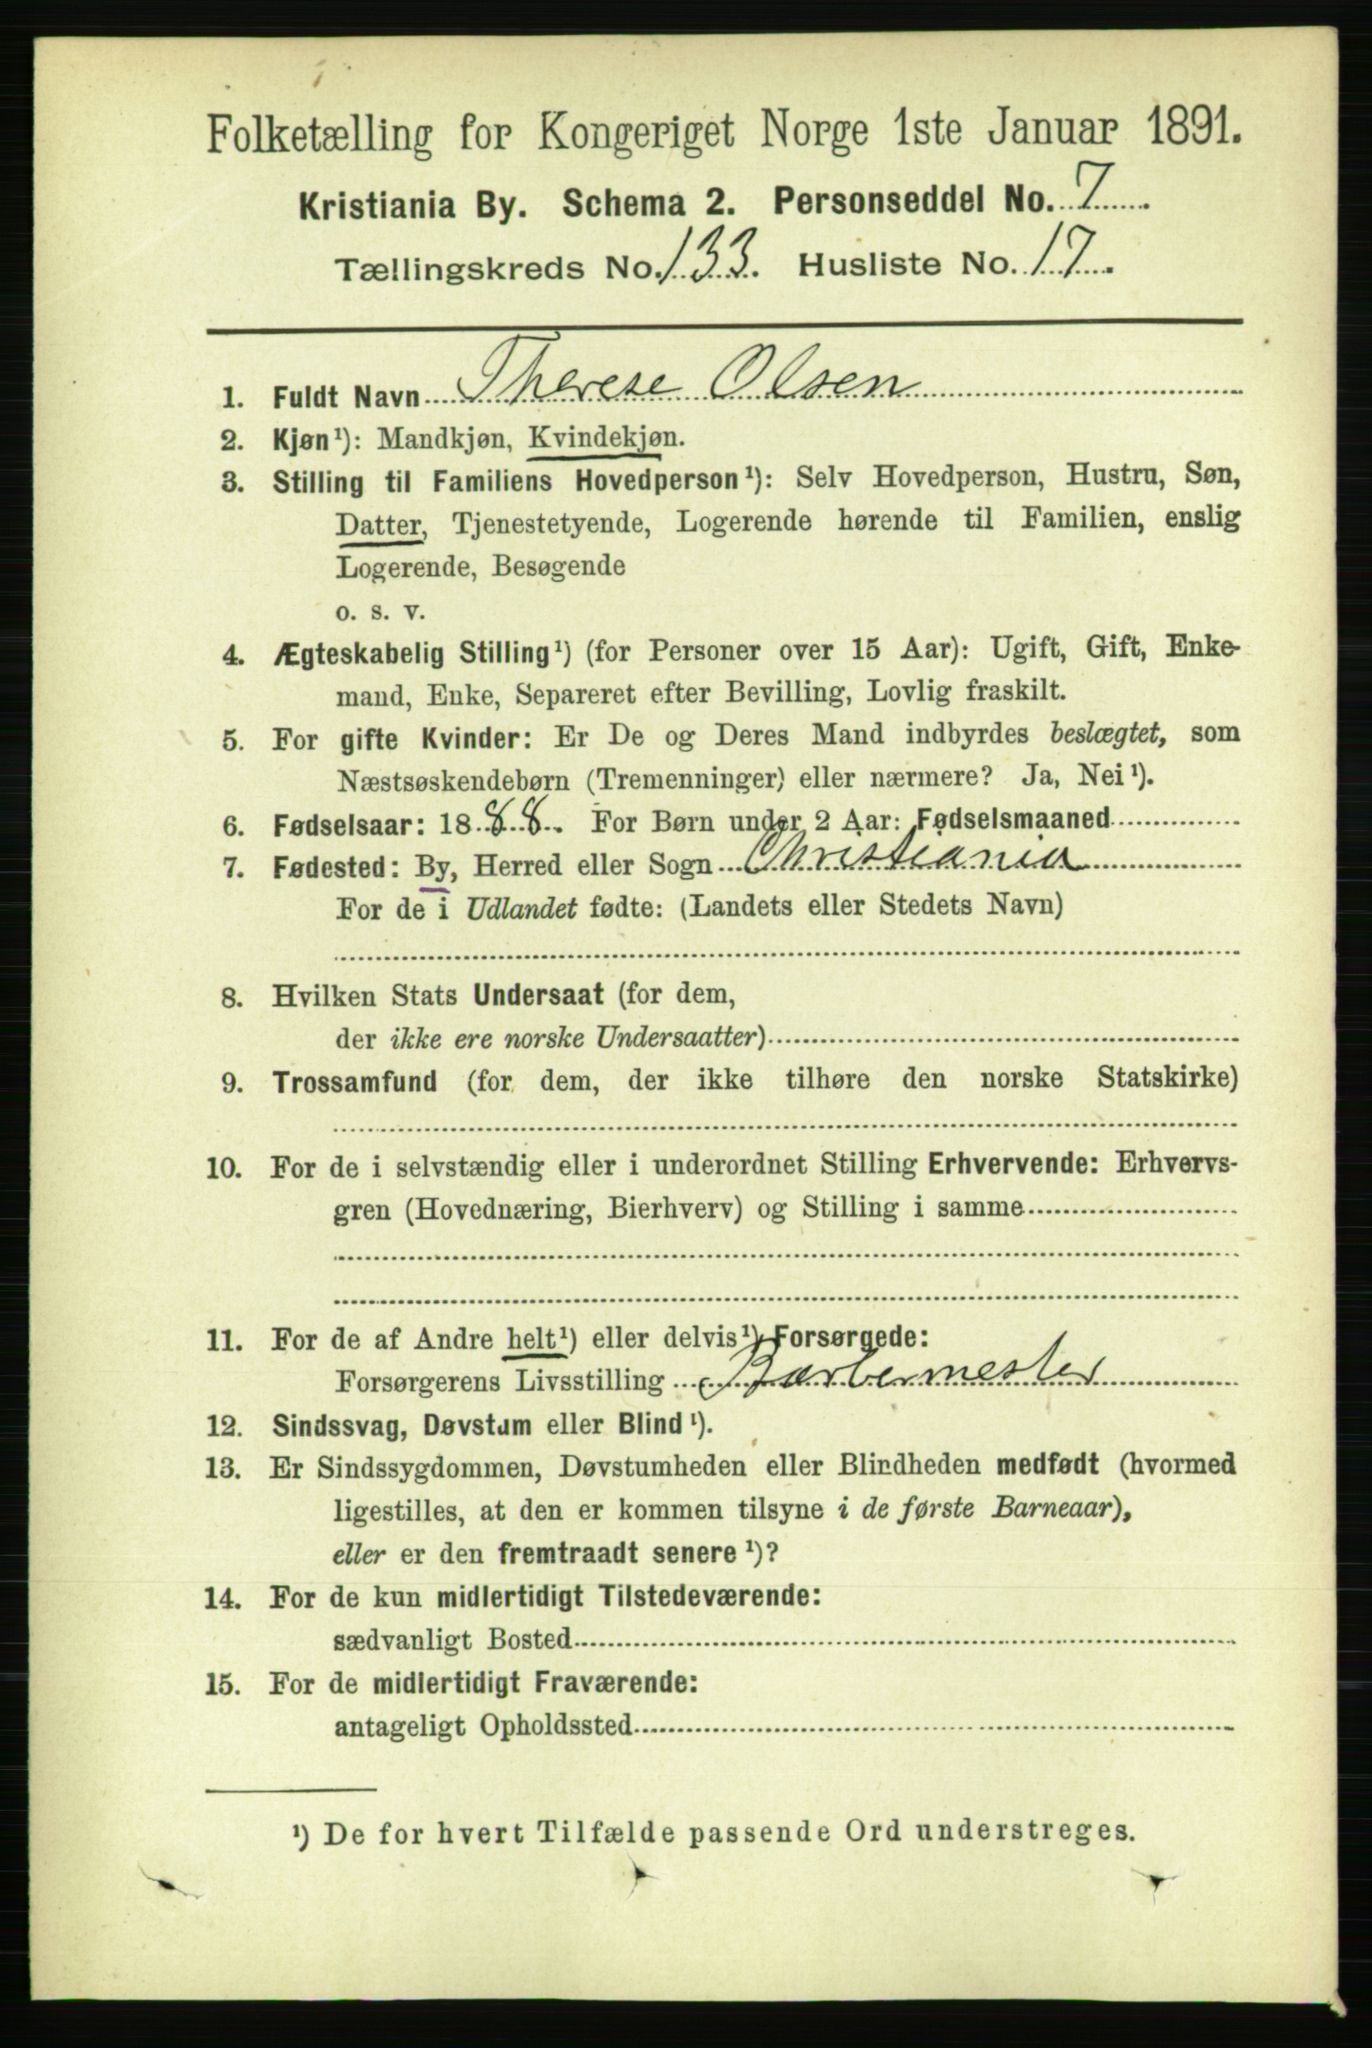 Folketælling for Kongeriget Norge 1ste Januar 1891.
Kristiania By. Schema 2. Personseddel No. 7
Tællingskreds No. 133. Husliste No. 17.
1. Fuldt Navn Therese Olsen
2. Kjøn¹): Mandkjøn, Kvindekjøn.
3. Stilling til Familiens Hovedperson¹): Selv Hovedperson, Hustru, Søn,
Datter, Tjenestetyende, Logerende hørende til Familien, enslig
Logerende, Besøgende
o. s. v.
4. Ægteskabelig Stilling¹) (for Personer over 15 Aar): Ugift, Gift, Enke-
mand, Enke, Separeret efter Bevilling, Lovlig fraskilt.
5. For gifte Kvinder: Er De og Deres Mand indbyrdes beslægtet, som
Næstsøskendebørn (Tremenninger) eller nærmere? Ja, Nei¹).
6. Fødselsaar: 1888. For Børn under 2 Aar: Fødselsmaaned
7. Fødested: By, Herred eller Sogn Christiania
For de i Udlandet fødte: (Landets eller Stedets Navn)
8. Hvilken Stats Undersaat (for dem,
der ikke ere norske Undersaatter)
9. Trossamfund (for dem, der ikke tilhøre den norske Statskirke)
10. For de i selvstændig eller i underordnet Stilling Erhvervende: Erhvervs-
gren (Hovednæring, Bierhverv) og Stilling i samme
11. For de af Andre helt¹) eller delvis¹) Forsørgede:
Forsørgerens Livsstilling Barbermester
12. Sindssvag, Døvstum eller Blind¹).
13. Er Sindssygdommen, Døvstumheden eller Blindheden medfødt (hvormed
ligestilles, at den er kommen tilsyne i de første Barneaar),
eller er den fremtraadt senere¹)?
14. For de kun midlertidigt Tilstedeværende:
sædvanligt Bosted
15. For de midlertidigt Fraværende:
antageligt Opholdssted
¹) De for hvert Tilfælde passende Ord understreges.